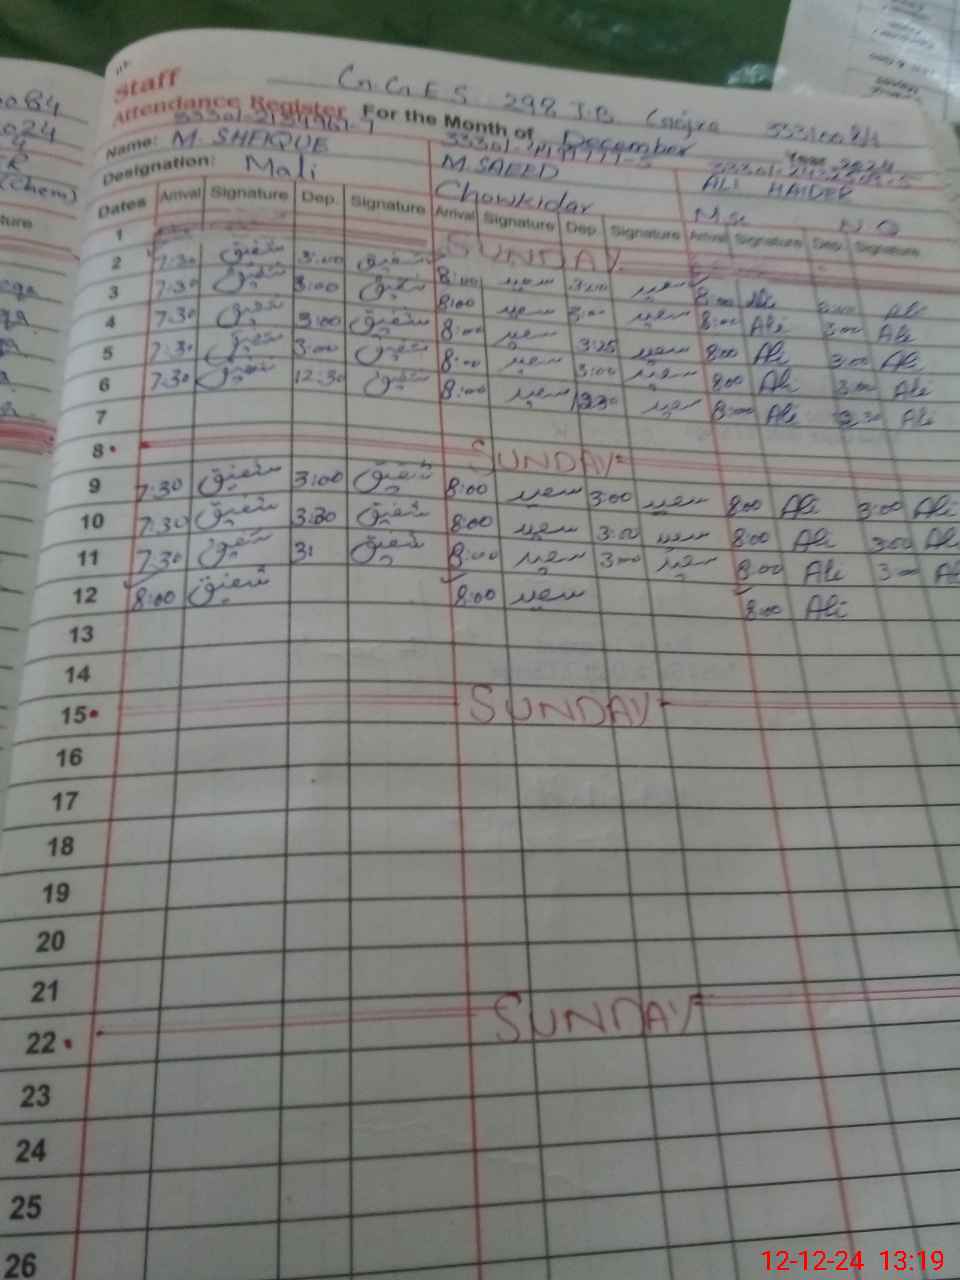 Staff
G.G.E.S 298 J.B
Attendance Register For the Month of December Year 2024
Name: M. SHFIQUE M.SAEED ALI HAIDER
Designation: Mali Chowkidar N Q
Dates Arrival Signature Dep. Signature Arrival Signature Dep. Signature Arrival Signature Dep. Signature
1 SUNDAY
2 7:30 شفیق 3:00 شفیق 8:00 سعید 3:00 سعید 8:00 Ali 3:00 Ali
3 7:30 شفیق 3:00 شفیق 8:00 سعید 3:00 سعید 8:00 Ali 3:00 Ali
4 7:30 شفیق 3:00 شفیق 8:00 سعید 3:25 سعید 8:00 Ali 3:00 Ali
5 7:30 شفیق 3:00 شفیق 8:00 سعید 3:00 سعید 8:00 Ali 3:00 Ali
6 7:30 شفیق 12:30 شفیق 8:00 سعید 1230 سعید 8:00 Ali Ali
7
8 SUNDAY
9 7:30 شفیق 3:00 شفیق 8:00 سعید 3:00 سعید 800 Ali 3:00 Ali
10 7:30 شفیق شفیق 8:00 سعید 3:00 سعید 8:00 Ali 300 Ali
11 7:30 شفیق شفیق 8:00 سعید 3:00 سعید 8:00 Ali 3:00
12 8:00 شفیق 8:00 سعید 8:00 Ali
13
14
15 SUNDAY
16
17
18
19
20
21
22 SUNDAY
23
24
25
26
12-12-24 13:19